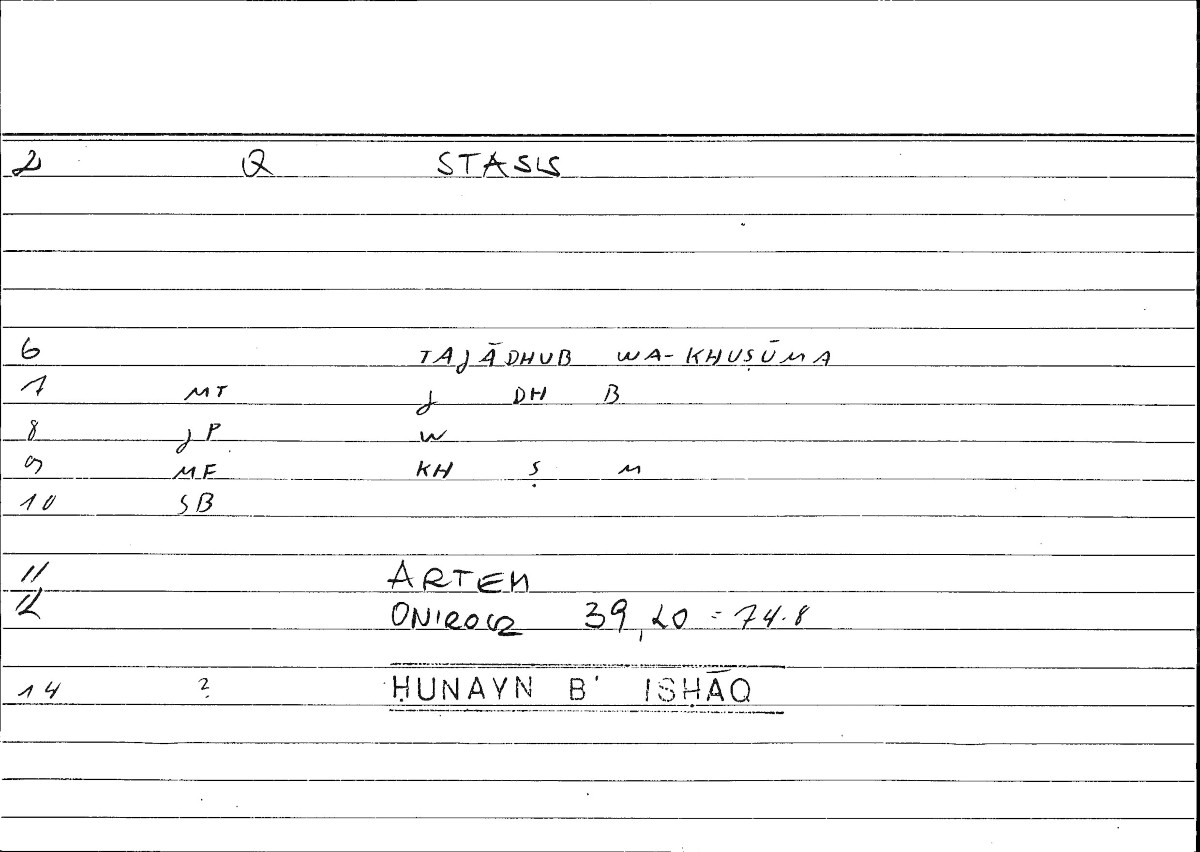 2 Q STASIS
6 TAJĀDHUB WA-KHUṢŪMA
7 MT J DH B
8 JP W
9 MF KH Ṣ M
10 SB
11 ARTEM
12 ONIROCR 39,20 = 74.8
14 ? ḤUNAYN B' ISḤĀQ